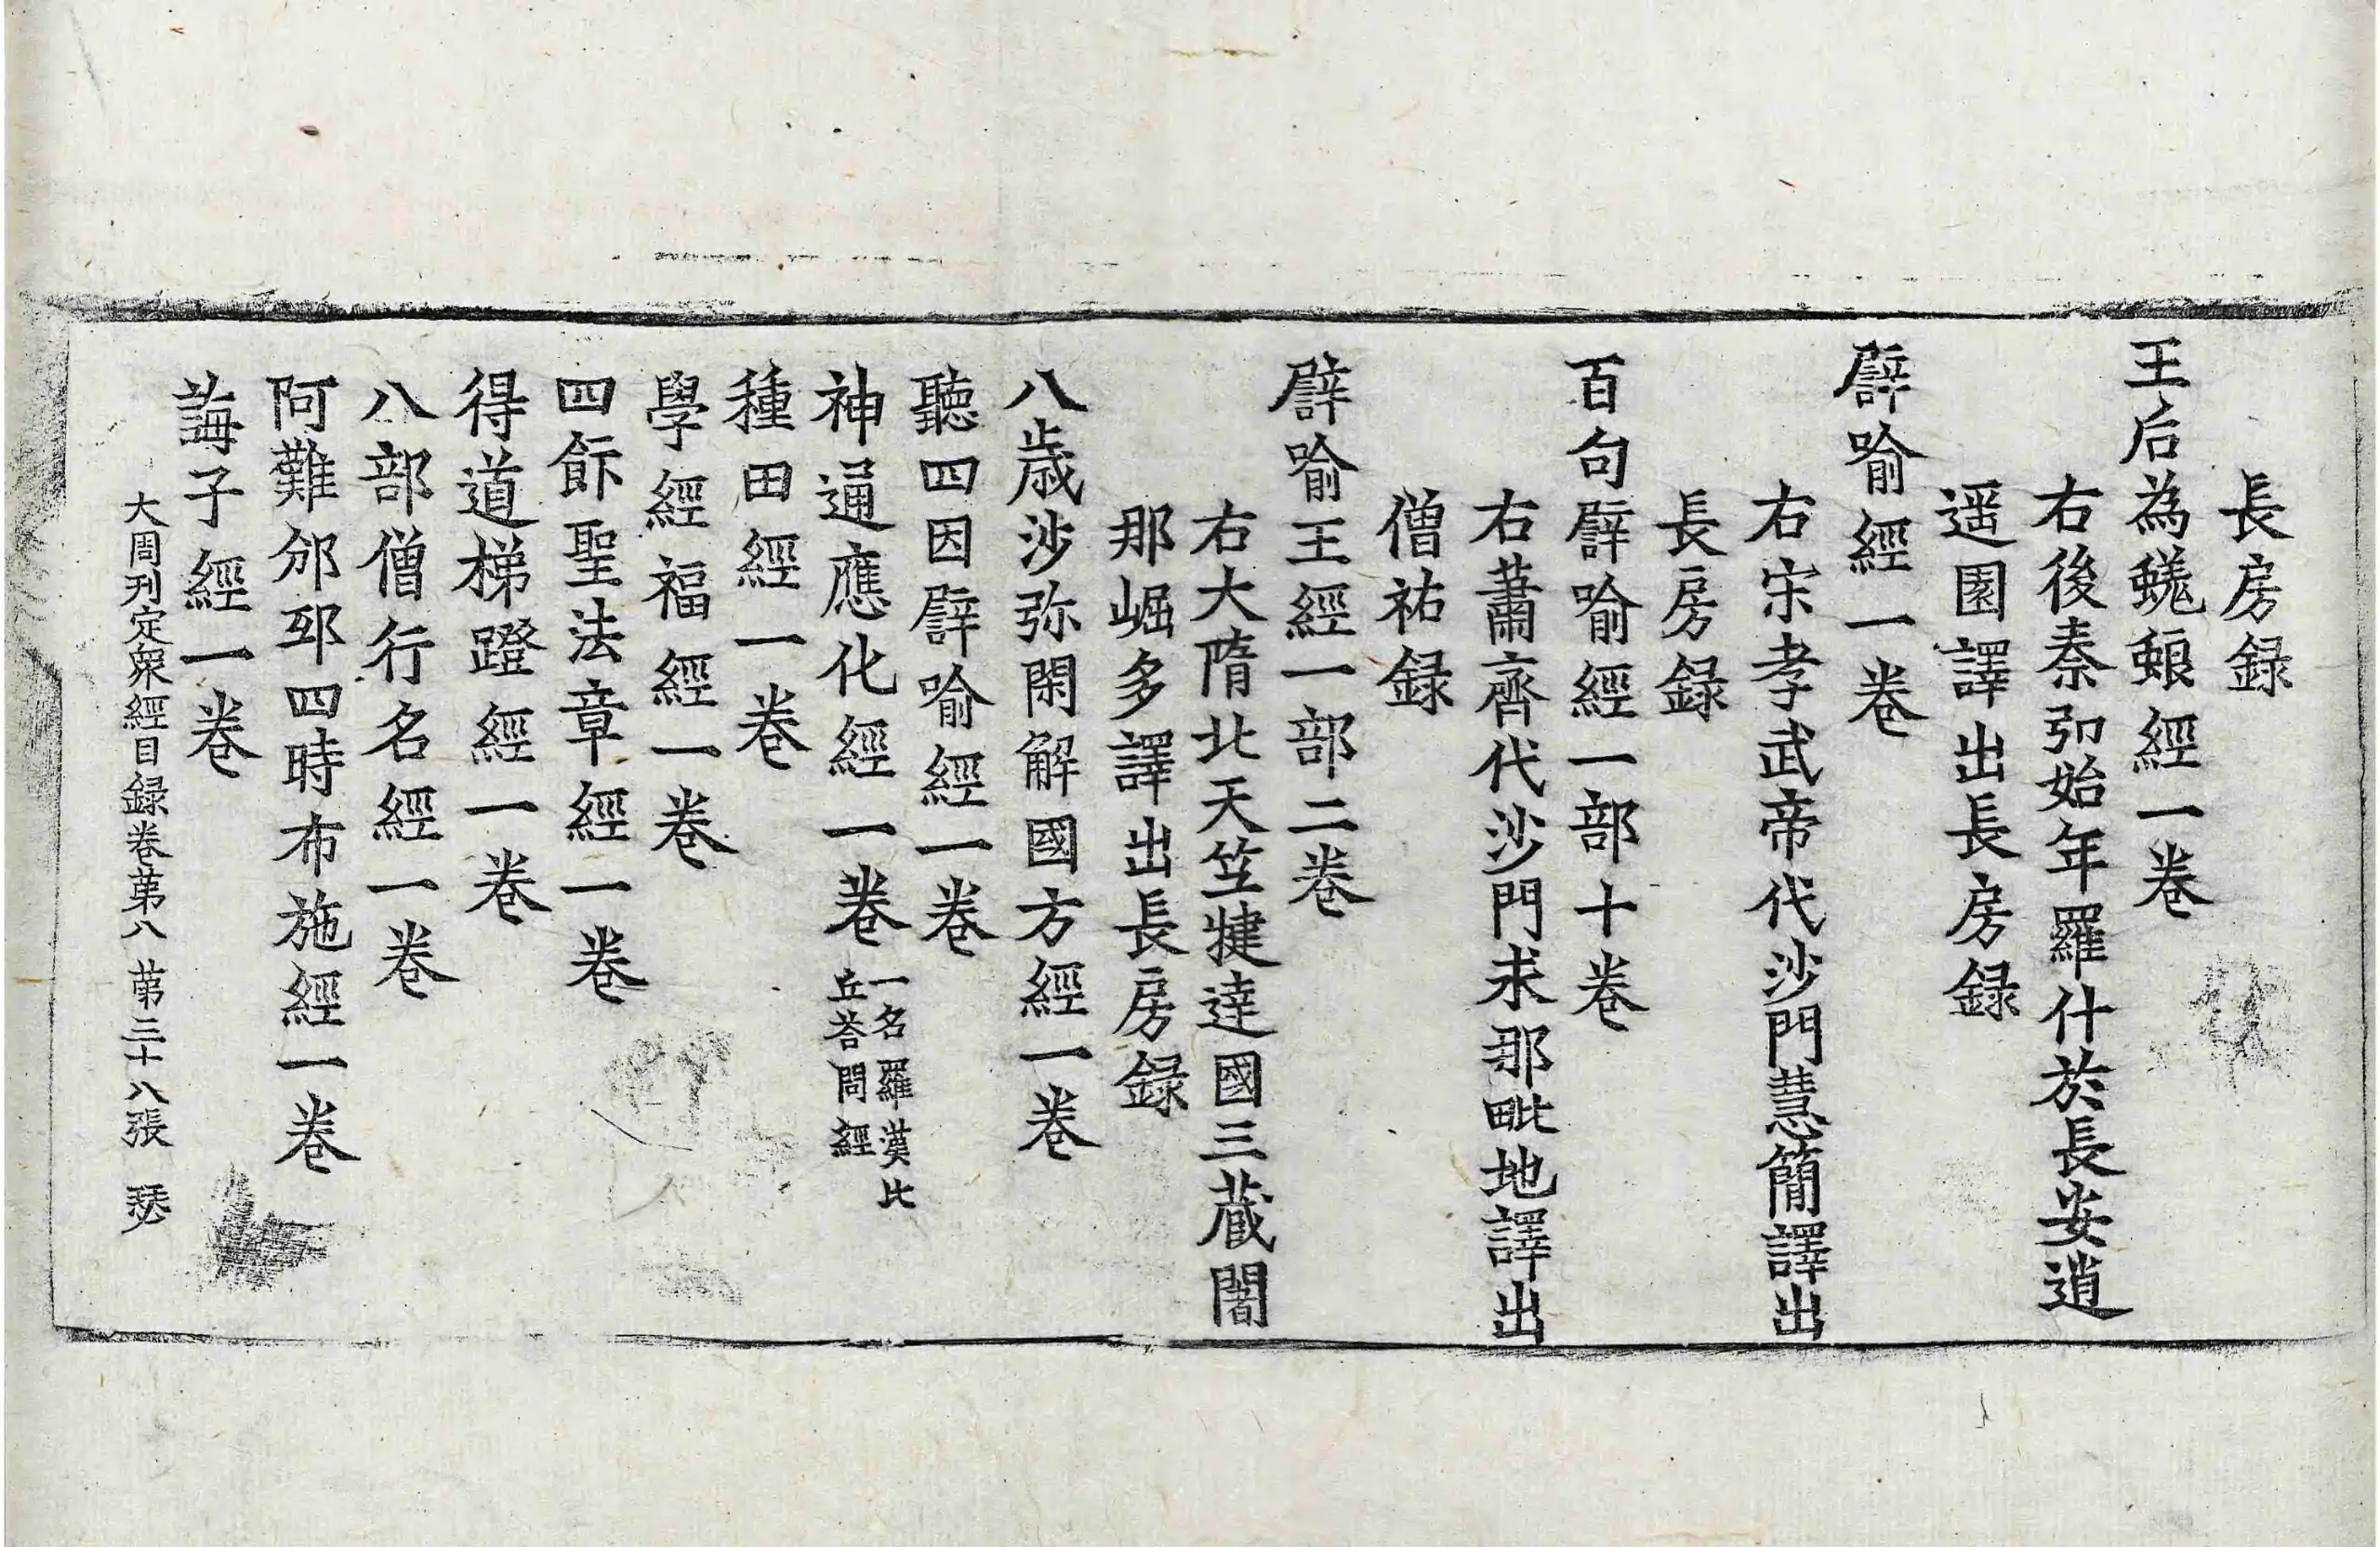 長房録
王后為蜣蜋經一卷
右後秦弘始年羅什於長安逍
遥園譯出長房録
譬喻經一卷
右宋孝武帝代沙門慧簡譯出
長房録
百句譬喻經一部十卷
右蕭齊代沙門求那毗地譯出
僧祐録
譬喻王經一部二卷
右大隋北天竺揵達國三藏闍
那崛多譯出長房録
八歲沙弥閑解國方經一卷
聽四因譬喻經一卷
神通應化經一卷 一名羅漢比
丘荅問經
種田經一卷
學經福經一卷
四飾聖法章經一卷
得道梯蹬經一卷
八部僧行名經一卷
阿難邠邳四時布施經一卷
誨子經一卷
大周刊定衆經目録卷苐八 苐三十八張 瑟